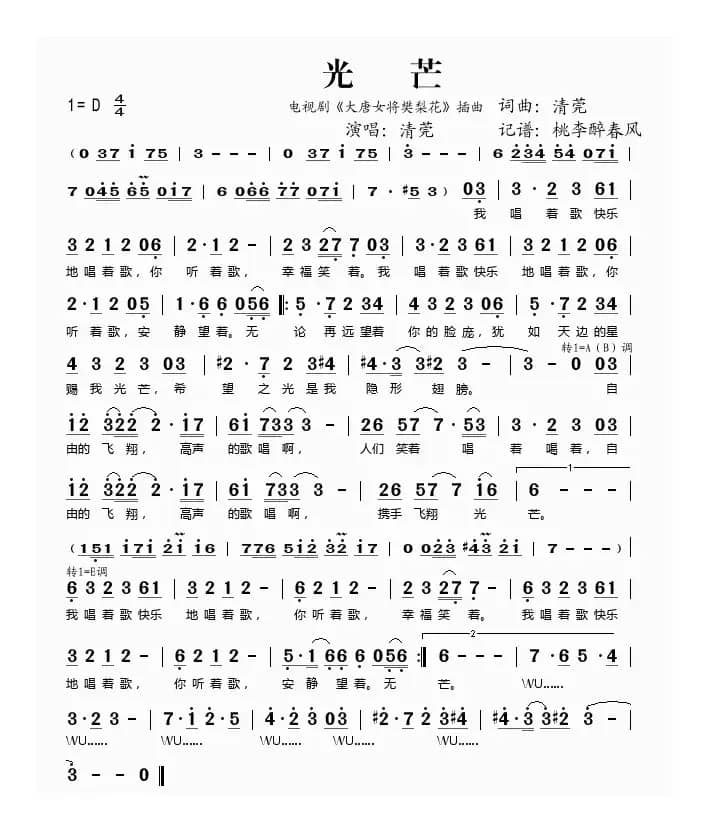 光 芒
1= D 4/4 电视剧《大唐女将樊梨花》插曲 词曲：清莞
演唱：清莞 记谱：桃李醉春风
( 0 37 i 75 | 3 - - - | 0 37 i 75 | 3 - - - | 6 234 54 07i |
7 045 65 0i7 | 6 066 77 07i | 7 · #5 3 ) 03 | 3 · 2 3 61 |
我 唱 着 歌 快乐
3 2 1 2 06 | 2 · 1 2 - | 2 3 27 7 03 | 3 · 2 3 61 | 3 2 1 2 06 |
地 唱 着 歌，你 听 着 歌， 幸 福 笑 着。我 唱 着歌 快乐 地 唱 着 歌，你
2 · 1 2 05 | 1 · 6 6 056 |: 5 · 7 2 34 | 4 3 2 3 06 | 5 · 7 2 34 |
听 着 歌，安 静 望 着。无 论 再 远 望着 你 的 脸 庞，犹 如 天 边 的星
转1=A（B）调
4 3 2 3 03 | #2 · 7 2 3#4 | #4 · 3 3#2 3 - | 3 - 0 03 |
赐 我 光 芒，希 望 之 光 是我 隐 形 翅 膀。 自
i2 322 2 · i7 | 6i 733 3 - | 26 57 7 · 53 | 3 · 2 3 03 |
由的 飞 翔， 高声 的歌 唱 啊， 人们 笑着 唱 着 喝 着，自
i2 322 2 · i7 | 6i 733 3 - | 26 57 7 i6 | 1 6 - - - |
由的 飞 翔， 高声 的歌 唱 啊， 携手 飞翔 光 芒。
( i5i i7i 2i i6 | 776 5i2 32 i7 | 0 023 #43 2i | 7 - - - ) |
转1=B调
6 3 2 3 61 | 3 2 1 2 - | 6 2 1 2 - | 2 3 27 7 - | 6 3 2 3 61 |
我 唱 着 歌 快乐 地 唱 着 歌， 你 听 着 歌， 幸 福 笑 着。 我 唱 着 歌 快乐
3 2 1 2 - | 6 2 1 2 - | 5 · 1 66 6 056 :| 2 6 - - - | 7 · 6 5 · 4 |
地 唱 着 歌， 你 听 着 歌， 安 静 望 着。无 芒。 WU......
3 · 2 3 - | 7 · i 2 · 5 | 4 · 2 3 03 | #2 · 7 2 3#4 | #4 · 3 3#2 3 - |
WU...... WU...... WU...... WU...... WU......
3 - - 0 ‖